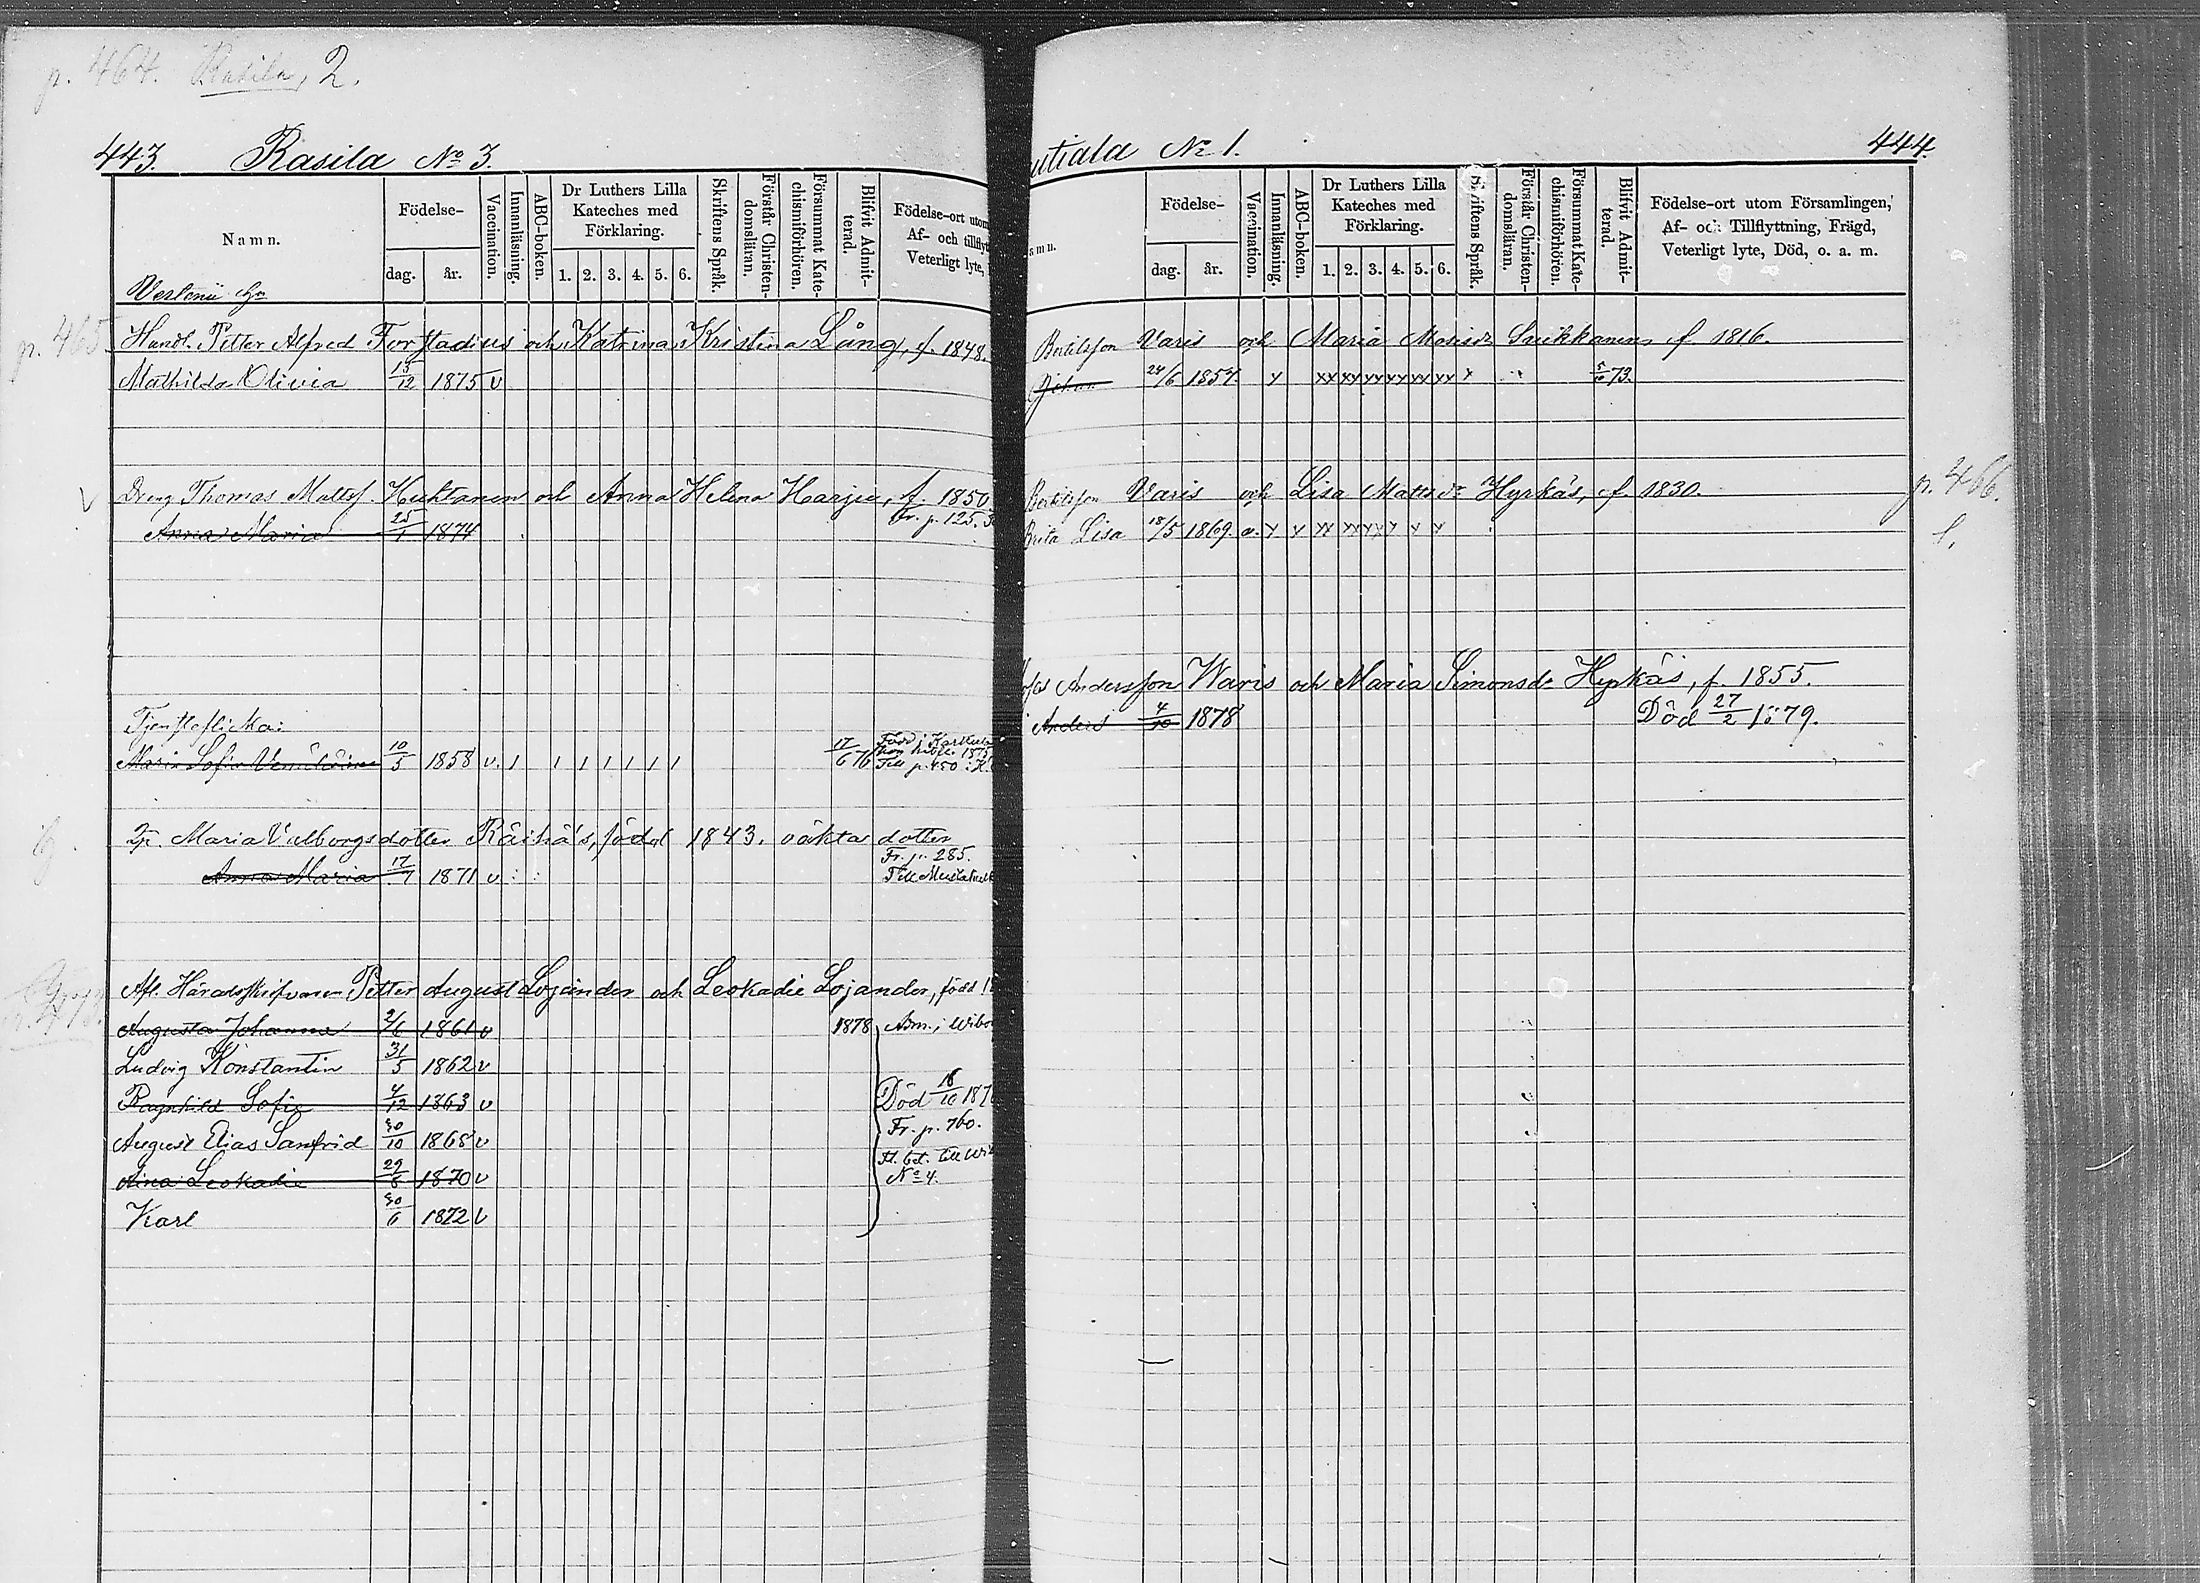 p. 464. Rasila, 2.
443. Rasila No 3.
Namn.
Födelse-
dag. år.
Vaccination.
Innanläsning.
ABC-boken.
Dr Luthers Lilla Kateches med Förklaring.
1. 2. 3. 4. 5. 6.
Skriftens Språk.
Förstår Christendomsläran.
Försummat Katechismiförhören.
Blifvit Admitterad.
Födelse-ort utom
Af- och tillflyt
Veterligt lyte,
p. 465.
Handl. Petter Alfred Forstadius och Katrina Kristina Lång, f. 1848.
Mathilda Olivia 15/12 1875 v
Dreng Thomas Mattss. Huhtanen och Anna Helena Harju, f. 1850
Fr. p. 125.
Anna Maria 25/1 1874
Tjensteflicka:
Maria Sofia 10/5 1858 v. 1 1 1 1 1 1 1 17/6 76
Till p. 450
Maria Valborgsdotter Räihä's, född 1843. oäkta dotter
Fr. p. 285.
Anna Maria 17/1 1871 v
Till
Afl. Häradsskrifvaren Petter August Lojander och Leokadie Lojander, född
Augusta Johanna 2/6 1861 v 1878 Adm. i Wibo
Ludvig Konstantin 31/5 1862 v
Ragnhild Sofie 4/12 1863 v Död 16/10 187
August Elias Sanfrid 30/10 1868 v Fr. p. 760.
Aina Leokadie 29/8 1870 v Fl. bet. till Wi
No 4.
Karl 30/6 1872 v
utiala No 1.
444.
amn.
Födelse-
dag. år.
Vaccination.
Innanläsning.
ABC-boken.
Dr Luthers Lilla Kateches med Förklaring.
1. 2. 3. 4. 5. 6.
Skriftens Språk.
Förstår Christendomsläran.
Försummat Katechismiförhören.
Blifvit Admitterad.
Födelse-ort utom Församlingen,
Af- och Tillflyttning, Frägd,
Veterligt lyte, Död, o. a. m.
Bertilsson Varis och Maria Matsdr Suikkanen f. 1816.
Johan 24/6 1857. x xx xx xx xx xx xx x 5/10 73.
Bertilsson Varis och Lisa Mattsdr Hyrkäs, f. 1830.
p. 466.
Brita Lisa 18/5 1869. v. x x xx xx xx x x x
Andersson Waris och Maria Simonsdr Hyrkäs, f. 1855.
Anders 4/10 1878 Död 27/2 1879.